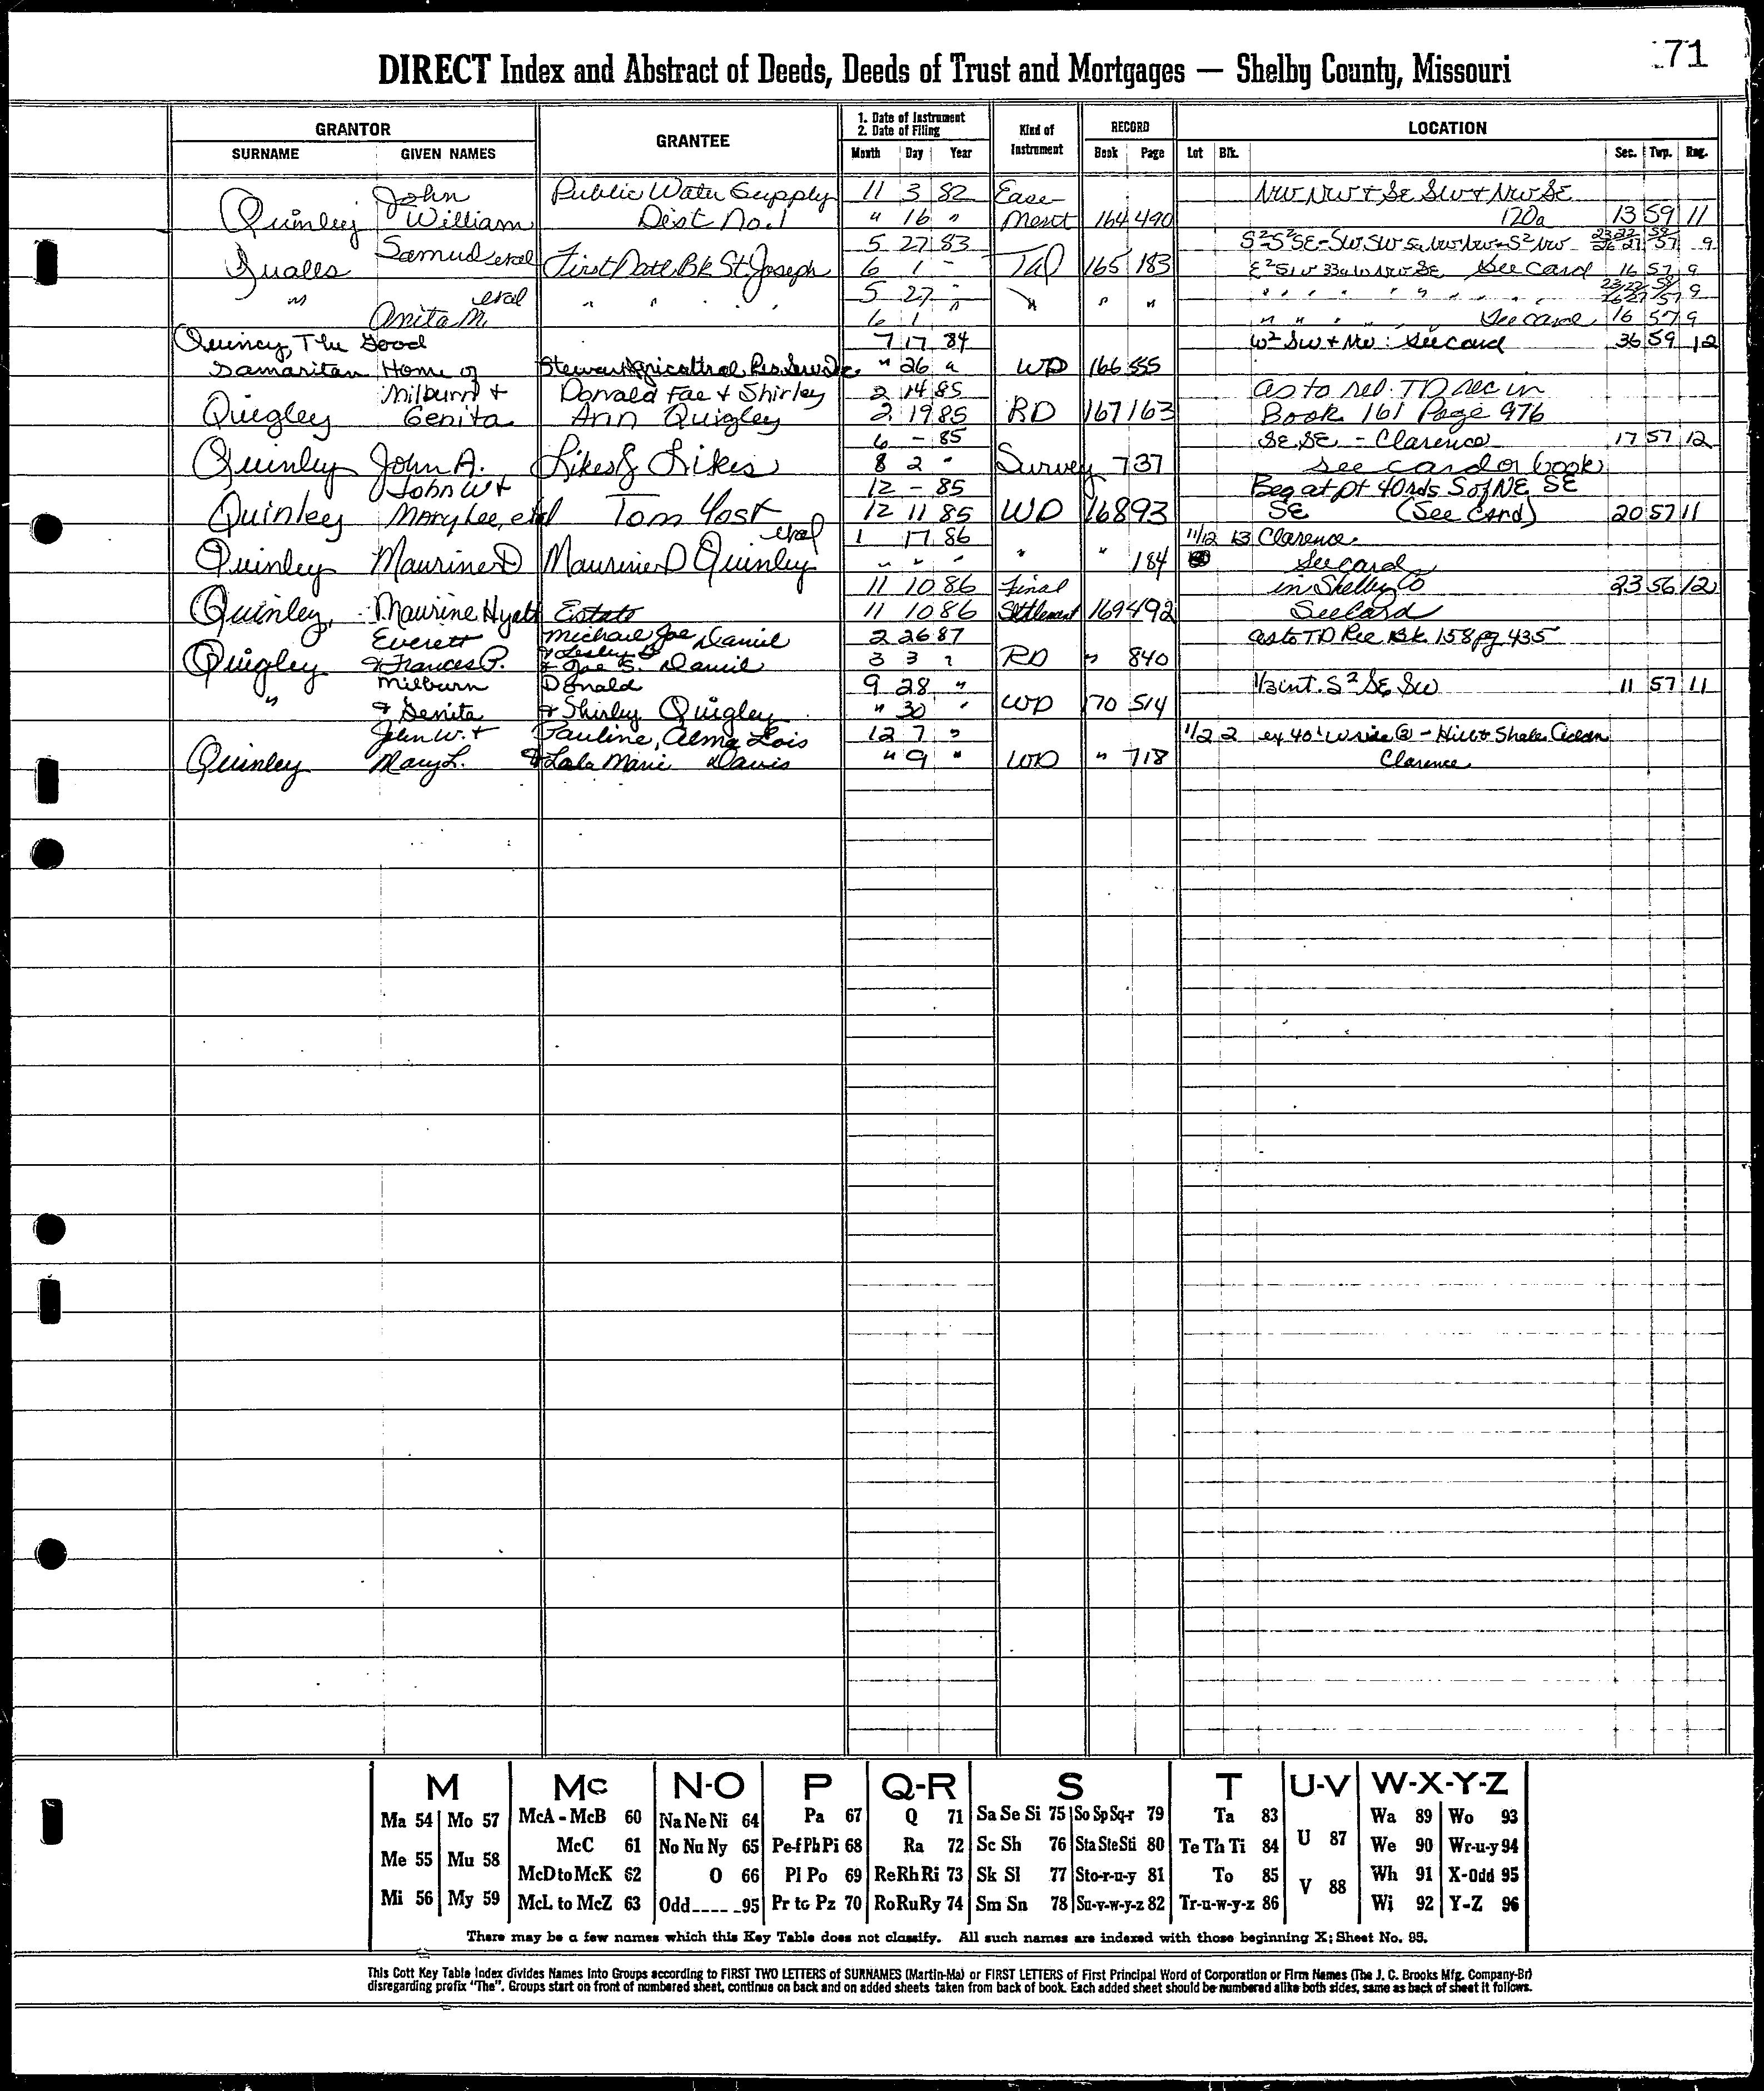 71
DIRECT Index and Abstract of Deeds, Deeds of Trust and Mortgages — Shelby County, Missouri
GRANTOR GRANTEE 1. Date of Instrument 2. Date of Filing Kind of Instrument RECORD LOCATION
SURNAME GIVEN NAMES Month Day Year Book Page Lot Blk. Sec. Twp. Rng.
John Public Water Supply 11 3 82 Ease NW NW & SE SW & NW SE
Quinley William Dist No. 1 " 16 " ment 164 490 120a 13 59 11
Samuel etal 5 27 83 S²S²SE - SW SW
Qualls First Natl Bk St Joseph 6 1 " 165 183 E²SW 33a W NW SE See card 16 57 9
" etal " " " " 5 27 " " " " 9
Anita M. 6 1 " See card 16 57 9
Quincy, The Good 7 17 84 W² SW & NW: See card 36 59 12
Samaritan Home of " 26 " WD 166 555
Milburn & Donald Fae & Shirley 2 14 85 as to rel. TD rec in
Quigley Genita Ann Quigley 2 19 85 RD 167 163 Book 161 Page 976
6 - 85 SE SE - Clarence 17 57 12
Quinley John A. Likes & Likes 8 2 " Survey 7 37 see card or book
John W & 12 - 85 Beg at pt 40rds S of NE SE
Quinley Mary Lee, etal Tom Yost 12 11 85 WD 168 93 SE (See Card) 20 57 11
etal 1 17 86 11/12 13 Clarence
Quinley Maurine D Maurine D Quinley " " " " " 184 See card
11 10 86 Final in Shelby Co 23 56 12
Quinley, Maurine Hyatt Estate 11 10 86 Settlement 169 492 See Card
Everett Michael Joe Daniel 2 26 87 as to TD Rec Bk 158 pg 435
Quigley & Frances P. & Lesley & Joe S. Daniel 3 3 " RD " 840
Milburn Donald 9 28 " 1/3 int. S² SE SW 11 57 11
" & Genita & Shirley Quigley " 30 " WD 170 514
John W. & Pauline, Alma Lois 12 7 " 1/2 2 ex 40' W side
Quinley Mary L. & Lala Marie Davis " 9 " WD " 718 Clarence
M Mc N-O P Q-R S T U-V W-X-Y-Z
Ma 54 Mo 57 McA - McB 60 Na Ne Ni 64 Pa 67 Q 71 Sa Se Si 75 So Sp Sq-r 79 Ta 83 U 87 Wa 89 Wo 93
McC 61 No Nu Ny 65 Pe-f Ph Pi 68 Ra 72 Sc Sh 76 Sta Ste Sti 80 Te Th Ti 84 We 90 Wr-u-y 94
Me 55 Mu 58 McD to McK 62 O 66 Pl Po 69 Re Rh Ri 73 Sk Sl 77 Sto-r-u-y 81 To 85 V 88 Wh 91 X-Odd 95
Mi 56 My 59 McL to McZ 63 Odd 95 Pr to Pz 70 Ro Ru Ry 74 Sm Sn 78 Su-v-w-y-z 82 Tr-u-w-y-z 86 Wi 92 Y-Z 96
There may be a few names which this Key Table does not classify. All such names are indexed with those beginning X; Sheet No. 95.
This Cott Key Table Index divides Names into Groups according to FIRST TWO LETTERS of SURNAMES (Martin-Ma) or FIRST LETTERS of First Principal Word of Corporation or Firm Names (The J. C. Brooks Mfg. Company-Br)
disregarding prefix "The". Groups start on front of numbered sheet, continue on back and on added sheets taken from back of book. Each added sheet should be numbered alike both sides, same as back of sheet it follows.